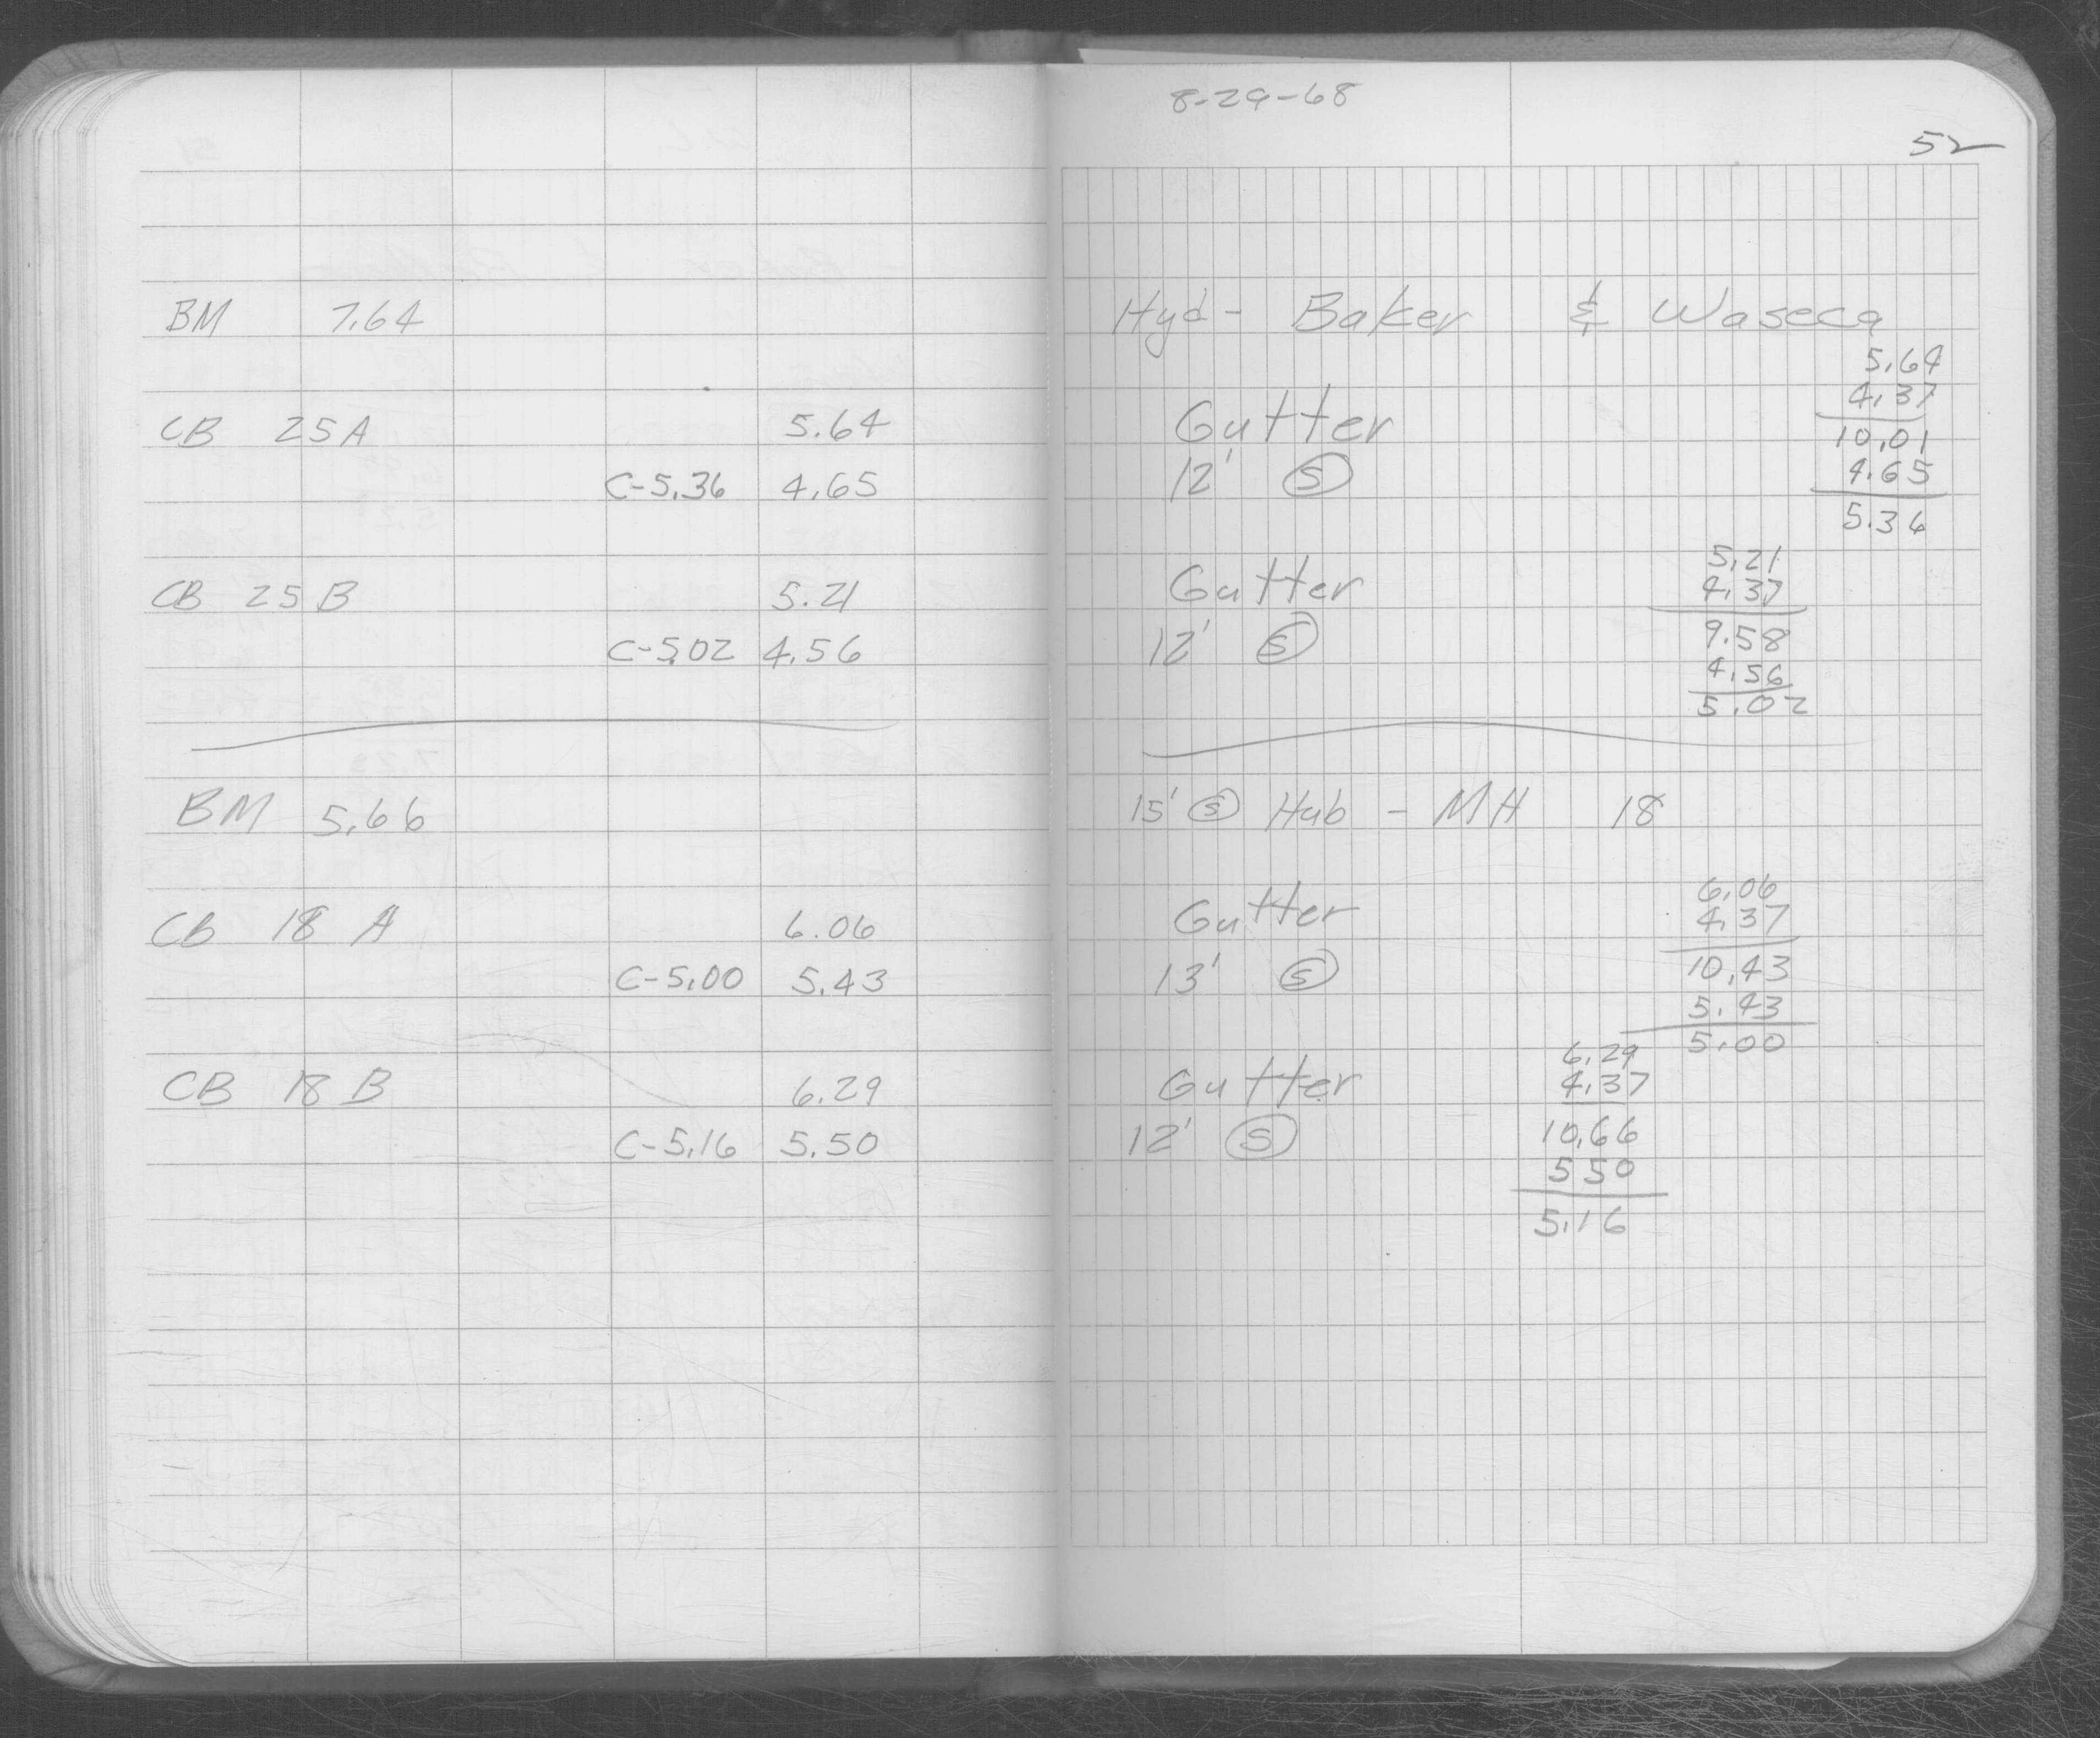 8-29-68
52
BM 7.64 Hyd- Baker & Waseca
5.64
4.37
CB 25A 5.64 Gutter
10.01
C-5.36 4.65 12' S
4.65
5.36
CB 25B 5.21 Gutter
5.21
4.37
C-5.02 4.56 12' S
9.58
4.56
5.02
BM 5.66 15' S Hub - MH 18
CB 18 A 6.06 Gutter
6.06
4.37
C-5.00 5.43 13' S
10.43
5.43
5.00
CB 18 B 6.29 Gutter
6.29
4.37
C-5.16 5.50 12' S
10.66
5 50
5.16